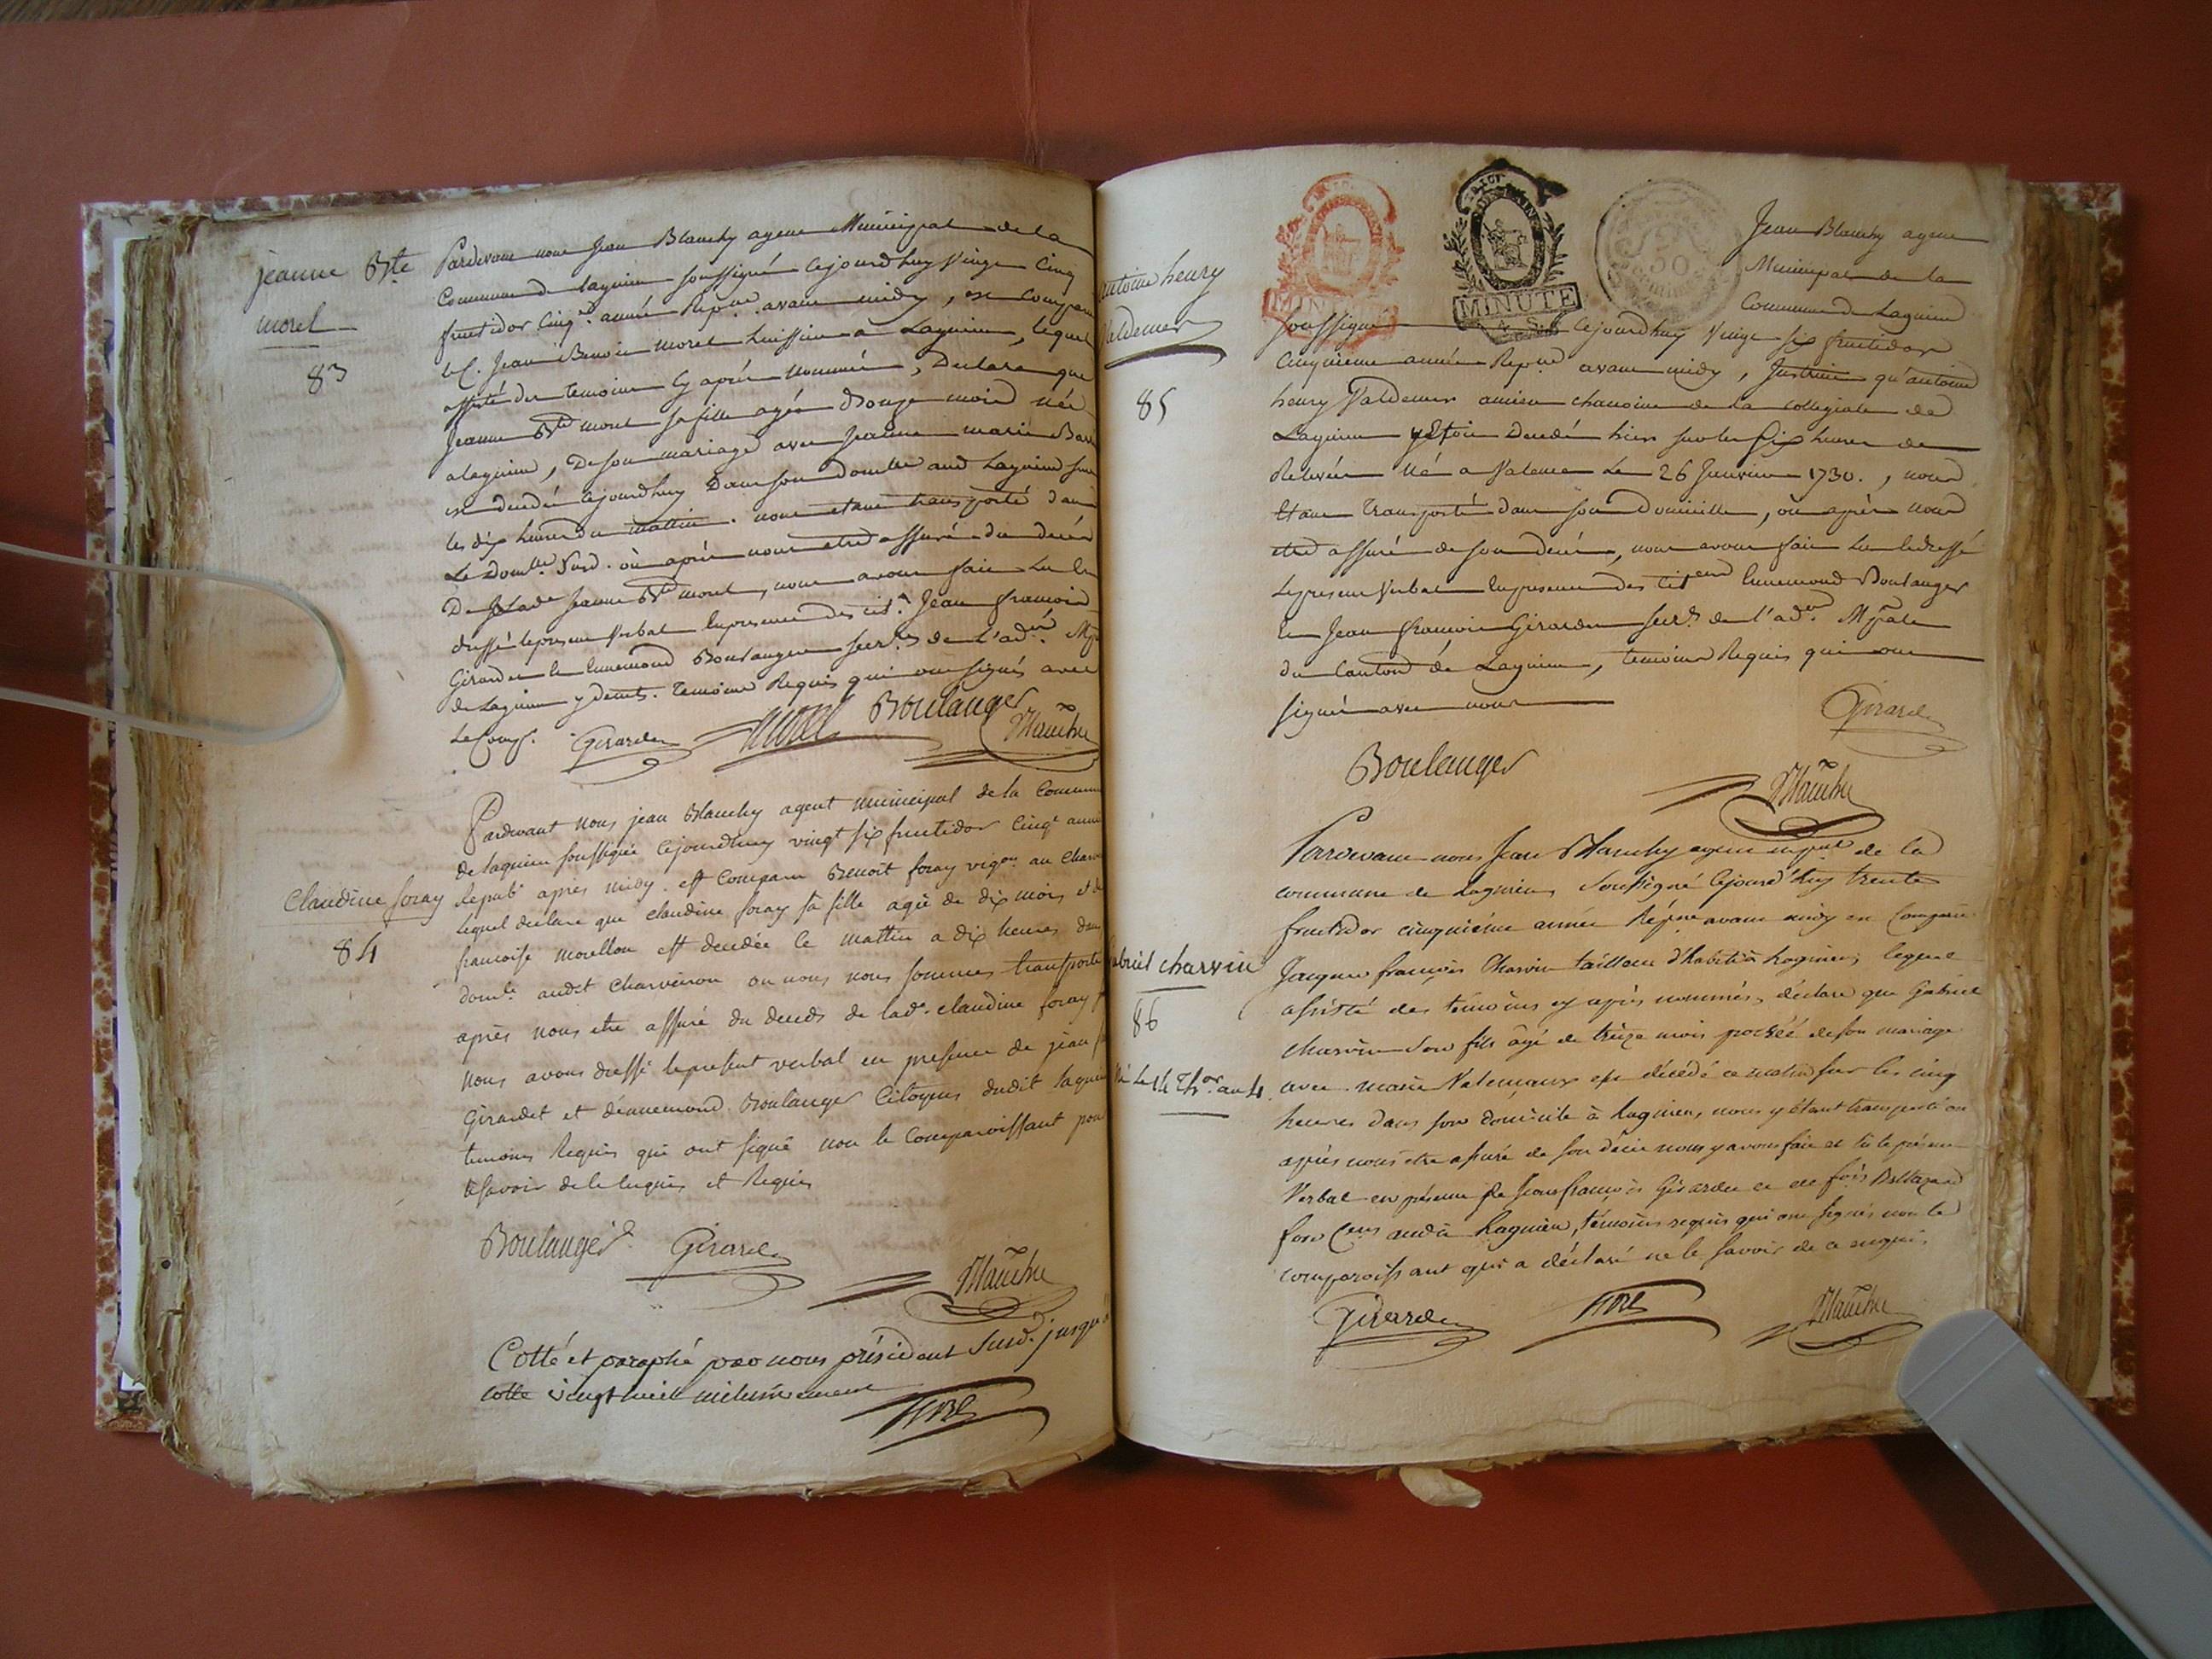 jeanne Bte
morel
83
Pardevant nous Jean Blanchy agent Municipal de la
Commune de lagnieu soussigné cejourdhuy vingt cinq
fructidor cinqe. année Repne. avant midy, est comparu
le C. Jean Benoit morel huissier à Lagnieu, lequel
assisté des temoins cy après nommés, Declare que
Jeanne Bte morel sa fille agée d'onze mois née
a lagnieu, De son mariage avec jeanne marie
est decedée cejourdhuy Dans son domlle aud Lagnieu sur
les dix heures du mattin. nous etant transporté dans
Le domlle Susd. où après nous etre assuré du decés
De Lade Jeanne Bte morel, nous avons fait et
dressé le present Verbal en presence des citns Jean françois
Girardet et Ennemond Boulanger secres de L'adon
de Lagnieu y demts. temoins Requis qui ont signés avec
Le Comp. Girardet morel Boulanger
Blanchy
Pardevant nous jean Blanchy agent municipal de la Commune
de lagnieu soussigné cejourdhuy vingt six fructidor cinqe année
Republ. après midy. est comparu Benoit foray vigon au
claudine foray
84
lequel declare que claudine foray sa fille agée de dix mois et de
francoise morellon est decedée ce mattin a dix heures dans
domle. audit Charveyron ou nous nous sommes transporté
après nous etre assuré du deceds de lade. claudine foray
nous avons dressé le present verbal en presence de jean
Girardet et d'ennemond Boulanger Citoyens dudit lagnieu
temoins Requis qui ont signé non le Comparoissant pour
ne savoir de ce enquis et Requis
Boulanger Girardet
Blanchy
Cotté et paraphé par nous président Susd. jusqu'à
cotte vingt huit
antoine henry
Valdemer
85
MINUTE
MINUTE
50
Jean Blanchy agent
Municipal de la
Commune de Lagnieu
soussigné cejourdhuy vingt six fructidor
cinquieme année Repne avant midy, Instruit qu'antoine
henry Valdemer ancien chanoine de la collegiale de
Lagnieu y Etoit Decedé hier sur les six heures de
Relevée né a Valence Le 26 Janvier 1730., nous
Etant transporté dans son Domicille, où après nous
etre assuré de son decés, nous avons fait et dressé
Le present Verbal en presence des citens Ennemond Boulanger
et Jean françois Girardet secres de l'adon Mpale
du Canton de Lagnieu, temoins Requis qui ont
signé avec nous
Girardet
Boulanger
Blanchy
Pardevant nous Jean Blanchy agent mpal de la
commune de Lagnieu, soussigné Cejourd'huy trente
fructidor cinquième année Répne avant midy est Comparu
gabriel charvin
86
né le 14 Thor an 4
Jacques françois Charvin tailleur d'habits à Lagnieu, lequel
assisté des témoins cy après nommés, déclare que Gabriel
Charvin son fils âgé de treize mois procréé de son mariage
avec marie est décédé ce matin sur les cinq
heures dans son domicile à Lagnieu, nous y étant transporté ou
après nous être assuré de son décès nous y avons fait et lu le présent
Verbal en présence de Jean françois Girardet et de Baltazard
Cens aud. Lagnieu, témoins requis qui ont signés non le
comparoissant qui a déclaré ne le savoir de ce enquis.
Girardet Blanchy